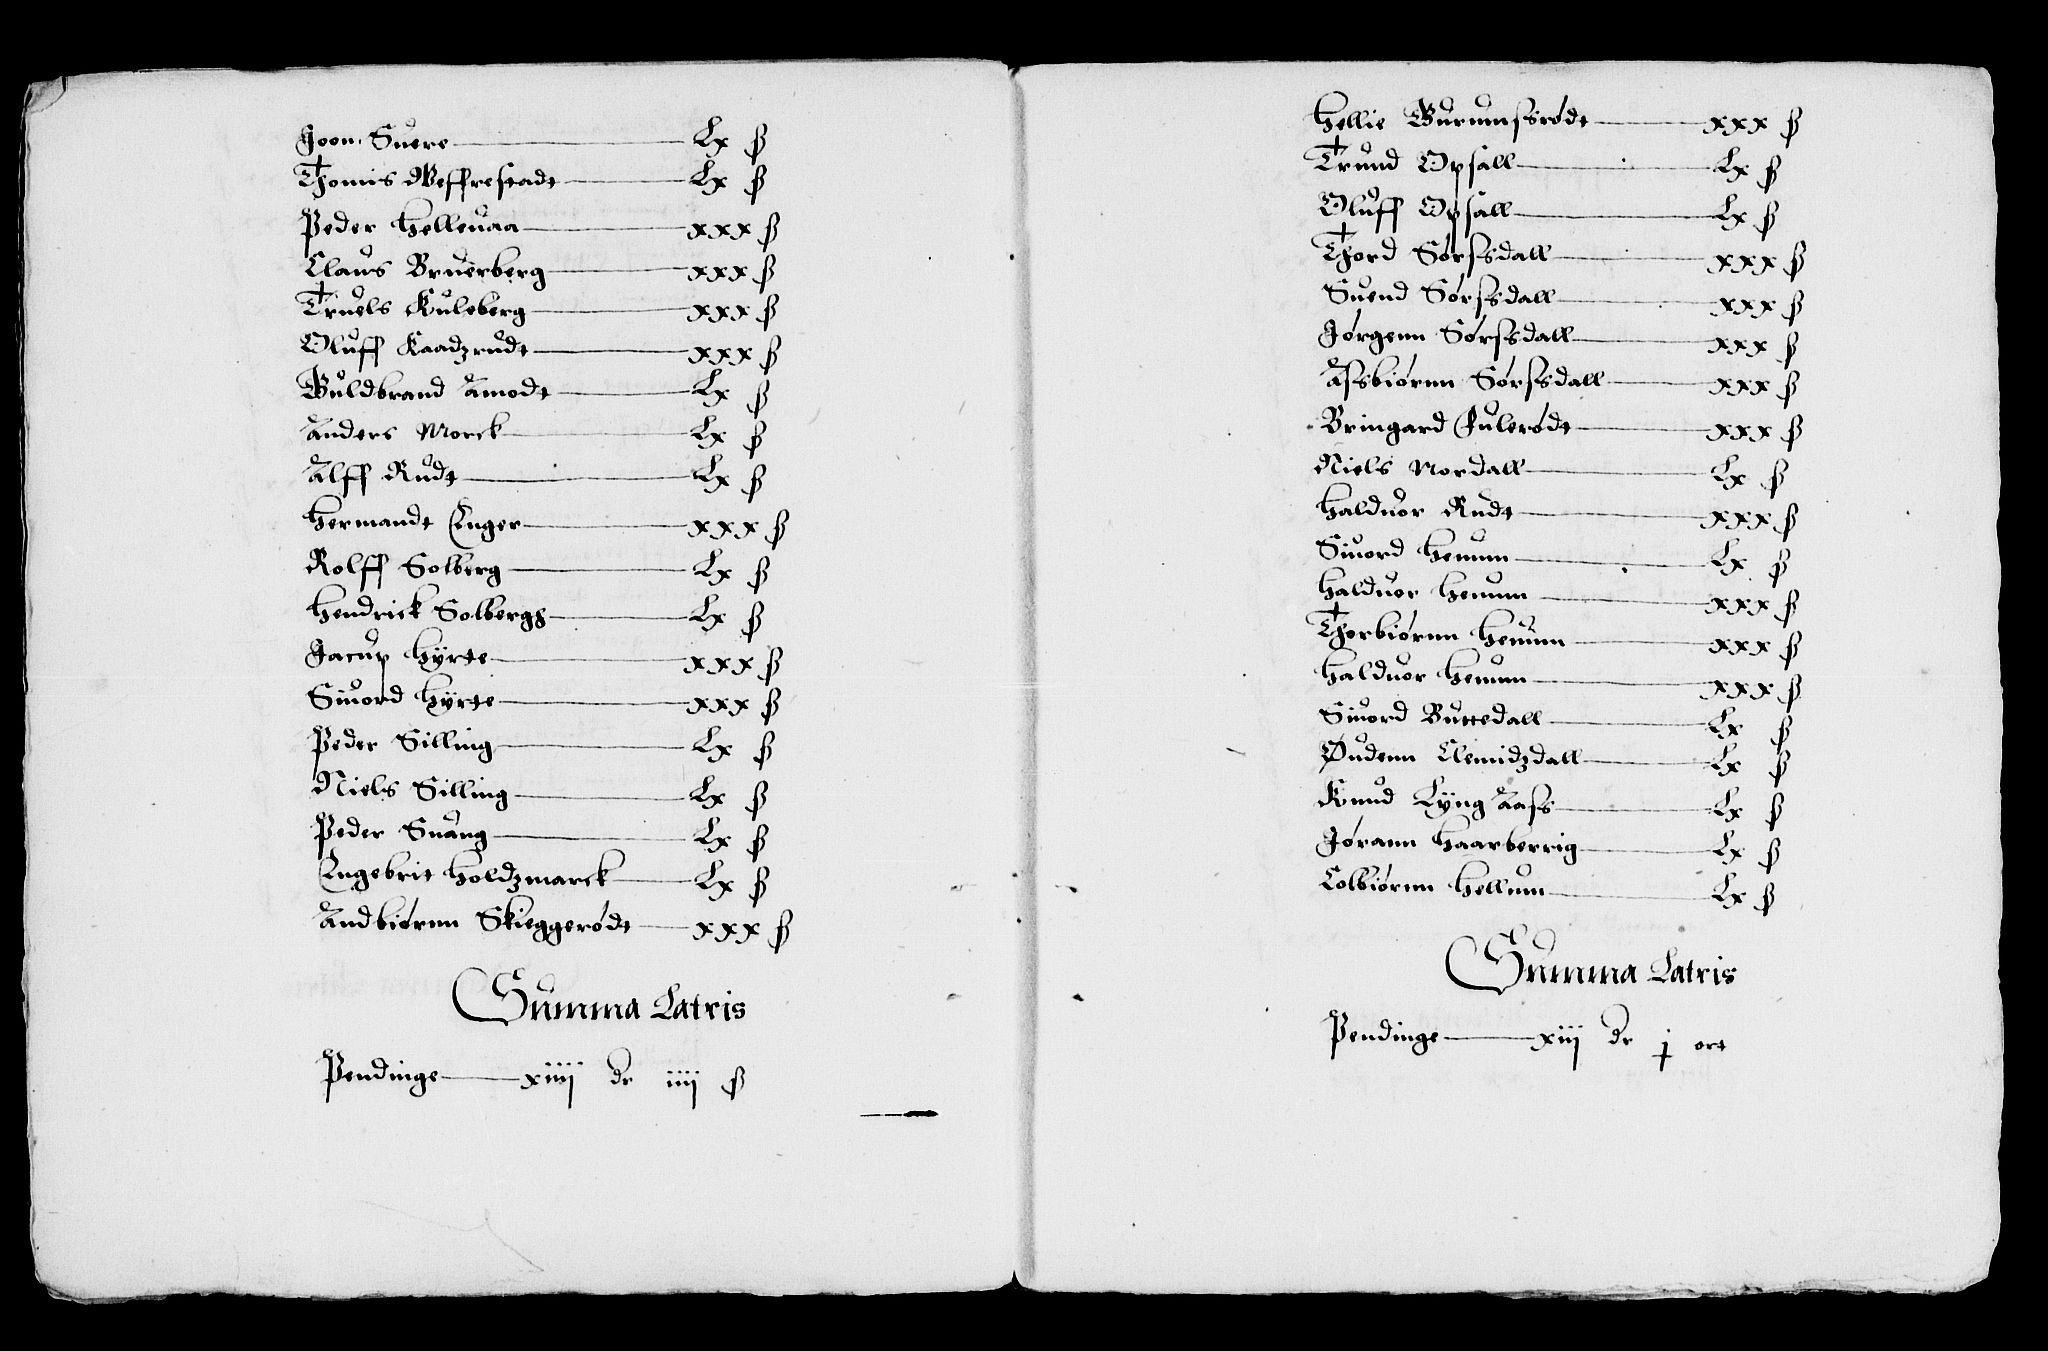 Joon Suere Lx ß
Thomis Weffrestadt Lx ß
Peder Helleuaa xxx ß
Claus Bruerberg xxx ß
Truels Kuleberg xxx ß
Oluff Kaadzrudt xxx ß
Guldbrand Amodt Lx ß
Anders Morck Lx ß
Alff Rudt Lx ß
Hermandt Enger xxx ß
Rolff Solberg Lx ß
Hendrick Solbergh Lx ß
Jacup Hÿrte xxx ß
Siuord Hÿrte xxx ß
Peder Silling Lx ß
Niels Silling Lx ß
Peder Suang Lx ß
Engebrit Holdzmarck Lx ß
Andbiørnn Skieggerødt xxx ß
Summa Latris
Pendinge xiiij dr iiij ß
Hellie Gurumsrødt xxx ß
Trund Opsall Lx ß
Oluff Opsall Lx ß
Thord Sørssdall xxx ß
Suend Sørssdall xxx ß
Jørgenn Sørssdall xxx ß
Assbiørnn Sørssdall xxx ß
Bringard Fulerødt xxx ß
Niels Mordall Lx ß
Halduor Rudt xxx ß
Siuord Henum Lx ß
Halduor Henum xxx ß
Thorbiørnn Henum xxx ß
Halduor Henum xxx ß
Siuord Buttedall Lx ß
Øudenn Clemidzdall Lx ß
Knud Lÿng Aass Lx ß
Jørann Haarberrig Lx ß
Colbiørnn Hellum Lx ß
Summa Latris
Pendinge xiij dr j ort